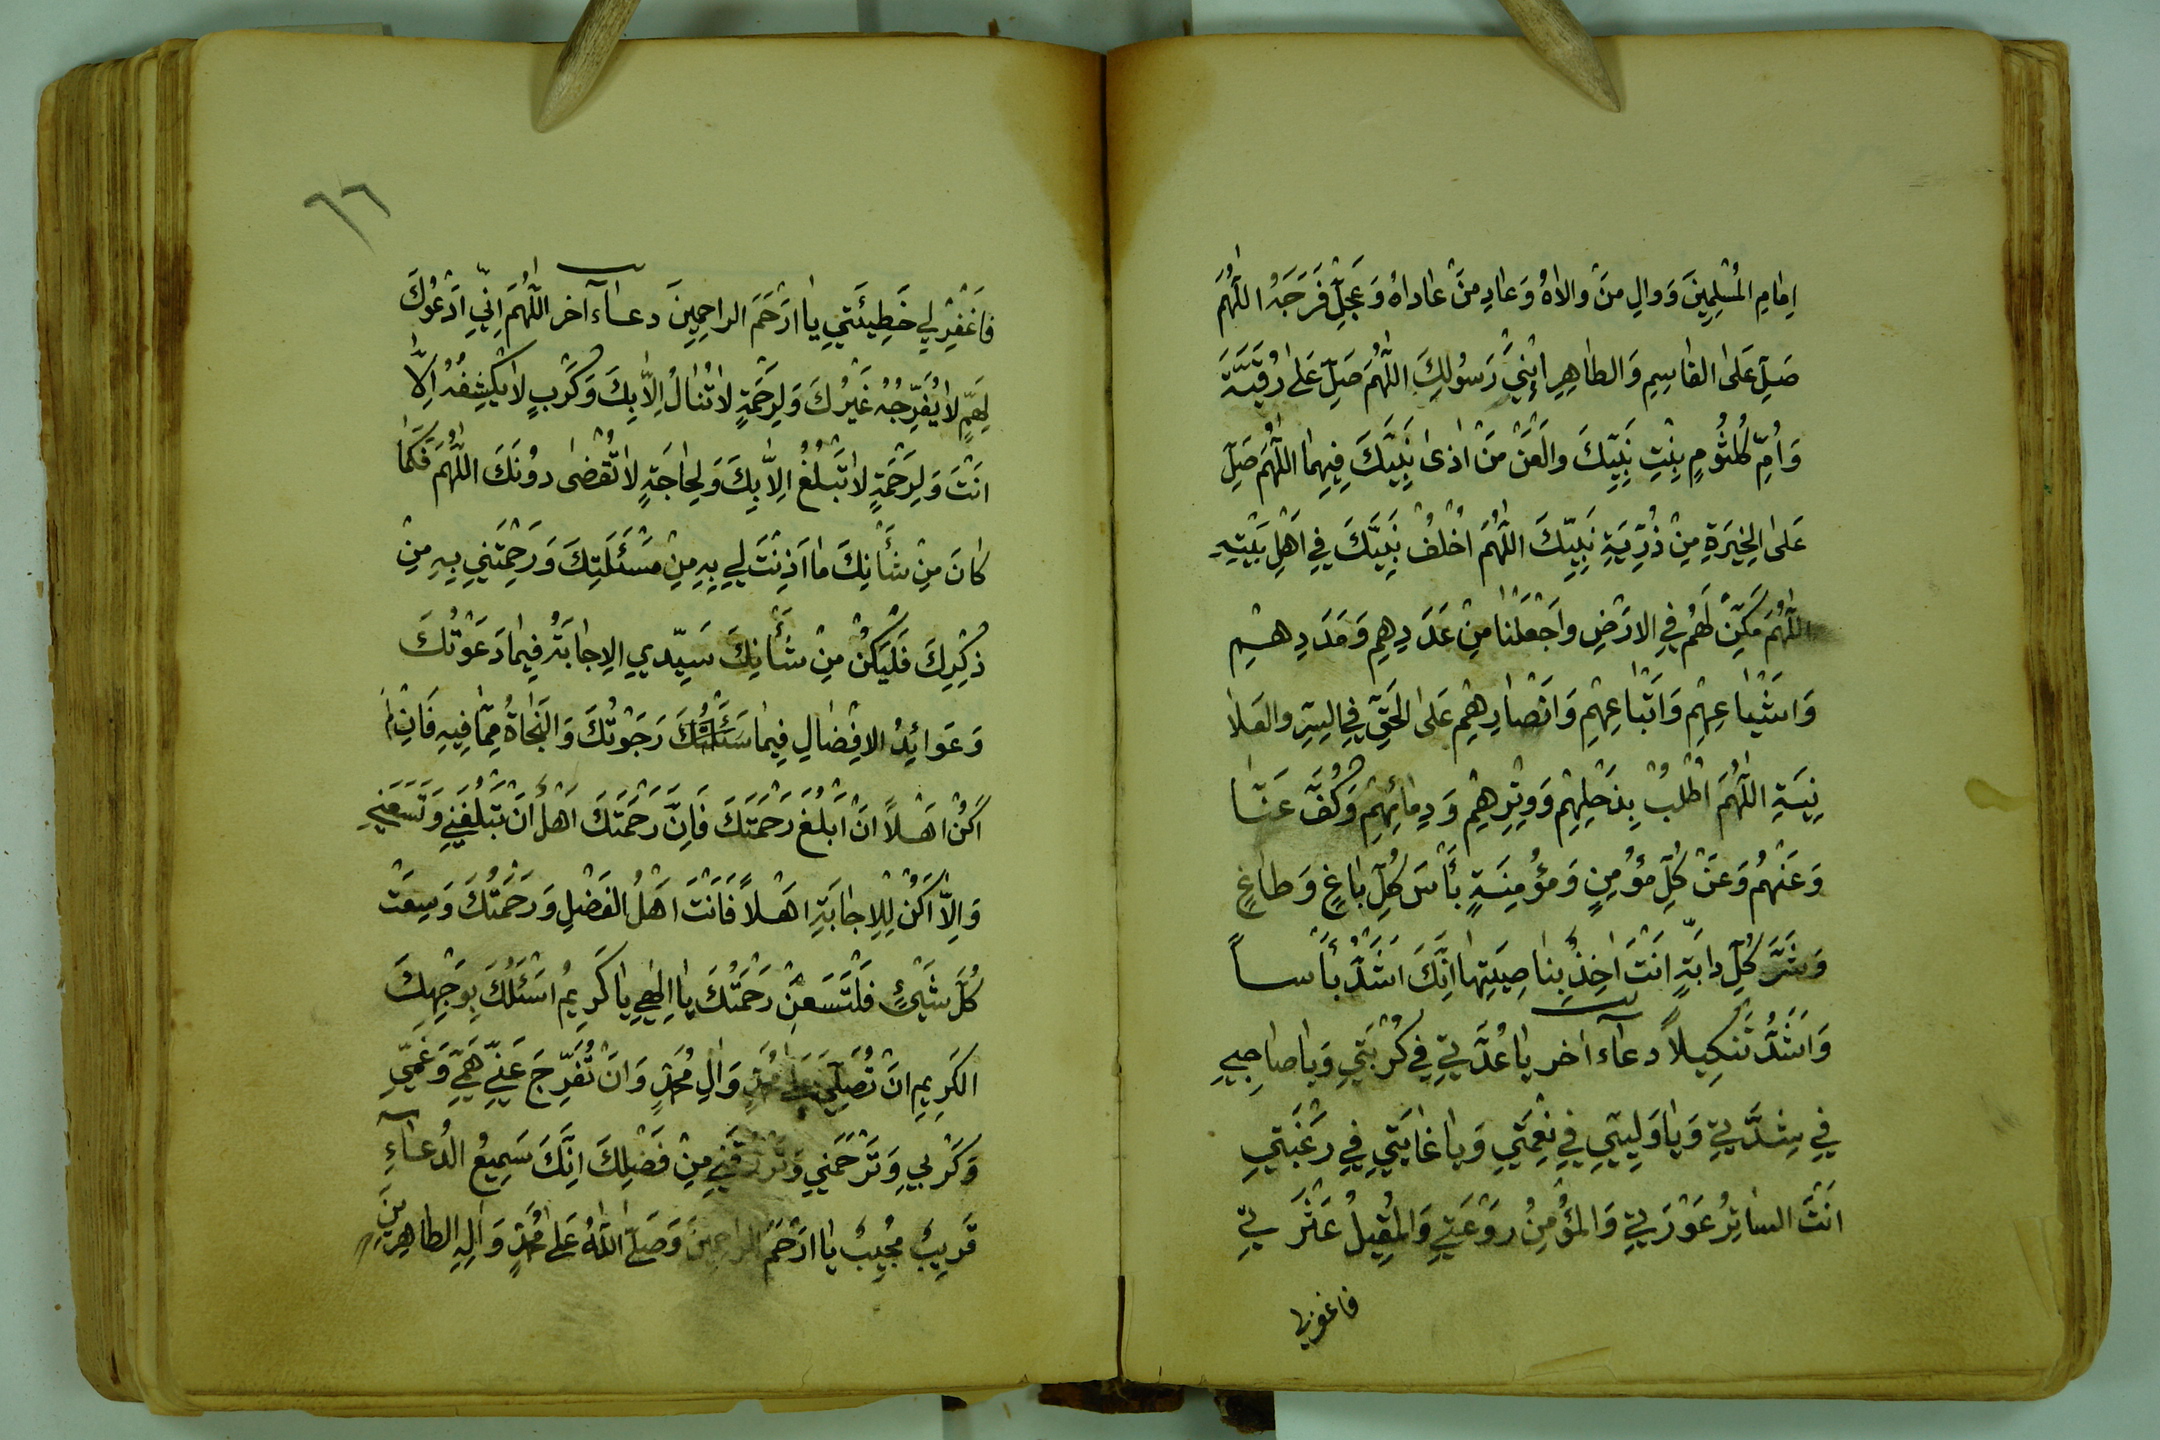 اِمٰامِ المُسْلِمِينَ وَوالِ مَنْ والاٰهُ وَعادِ مَنْ عٰاداهُ وَعَجِّلْ فَرَجَهُ اللّٰهُمَّ
صَلِّ عَلَى القٰاسِمِ وَالطٰاهِرِ ابْنَيْ رَسُولِكَ اللّٰهُمَّ صَلِّ عَلىٰ رُقَيَّةَ
وَاُمِّ كُلثُومٍ بِنْتِ نَبِيِّكَ وَالْعَنْ مَنْ اذىٰ نَبِيَّكَ فِيهِما اللّٰهُمَّ صَلِّ
عَلَى الخِيَرَةِ مِنْ ذُرِّيَةِ نَبِيِّكَ اللّٰهُمَّ اخْلُفْ نَبِيَّكَ فِي اَهْلِ بَيْتِهِ
اللّٰهُمَّ مَكِّنْ لَهُم فِي الاَرْضِ واجَعَلْنٰا مِنْ عَدَدِهِم وَمَدَدِهِم
وَاَشْيٰاعِهِمْ وَاَتْبٰاعِهِمْ وَاَنْصٰارِهِمْ عَلَى الحَقِّ فِي السِرِّ والعَلاٰ
نِيَةِ اللّٰهُمَّ اطْلُبْ بِذَحْلِهِمْ وَوِتْرِهِمْ وَدِمٰائِهِمْ وَكُفَّ عَنّٰا
وَعَنْهُم وَعَنْ كُلِّ مؤُمِنٍ وَمؤُمِنَةٍ بَأْسَ كُلِّ بٰاغٍ وَطٰاغٍ
وَشَرَّ كُلِّ دٰابَّةٍ اَنْتَ اخِذٌ بِنٰاصِيَتِها اِنَّكَ اَشَدُّ بَأْساً
وَاَشَدُّ تَنْكِيلاً دعاء اخر يٰا عُدَّتِي فِي كُرْبَتِي وَيا صٰاحِبي
فِي شِدَّتِي وَيٰا وَلِيّي فِي نِعْمَتِي وَيٰا غٰايَتِي فِي رَغْبَتِي
اَنْتَ السٰاتِرُ عَوْرَتِي وَالمُؤْمِنُ رَوْعَتِي وَالمُقِيلُ عَثْرَتِي
فاغفرلي
٦٦
فَاغْفِرْ لِي خَطِيئَتِي يٰا اَرْحَمَ الراحِمِينَ دعاء اخر اللّٰهُمَّ اِنّي اَدْعُوكَ
لِهَمٍّ لاٰ يُفَرِّجُهُ غَيْرُكَ وَلِرَحْمَةٍ لاٰ تُنٰالُ اِلاّٰ بِكَ وَكَرْبٍ لاٰ يَكْشِفُهُ اِلاّٰ
اَنْتَ وَلِرَحْمَةٍ لاٰ تَبْلُغُ اِلاّٰ بِكَ وَلِحٰاجَةٍ لاٰ تُقْضىٰ دُونَكَ اللّٰهُمَّ فَكَمٰا
كٰانَ مِنْ شَأْنِكَ مٰا اَذِنْتَ لِي بِهِ مِنْ مَسْئَلَتِكَ وَرَحِمْتَنِي بِهِ مِنْ
ذِكْرِكَ فَلْيَكُنْ مِنْ شَأْنِكَ سَيِّدي الاِجٰابَةُ فِيمٰا دَعَوْتُكَ
وَعَوائِدُ الاِفْضٰالِ فِيمٰا رَجَوْتُكَ وَالنَجٰاةُ مِمّٰا فِيهِ فَاِنْ لَمْ
اَكُنْ اَهْلاً اَنْ اَبْلُغَ رَحْمَتَكَ فَاِنَّ رَحْمَتَكَ اَهْلٌ اَنْ تَبْلُغَنِي وَتَسَعَنِي
وَاِلاّٰ اَكُنْ لِلاِجٰابَةِ اَهْلاً فَاَنْتَ اَهْلُ الفَضْلِ وَرَحْمَتُكَ وَسِعَتْ
كُلَّ شَيْئٍ فَلْتَسَعْنِي رَحْمَتُكَ يٰا اِلٰهِي يٰا كَرِيمُ اَسْئَلُكَ بِوَجْهِكَ
الكَرِيمِ اَنْ تُصَلِّيَ عَلىٰ مُحَمَّدٍ وَآلِ مُحَمَّدٍ وَاَنْ تُفَرِّجَ عَنّي هَمِّي وَغَمّي
وَكَرْبِي وَتَرْحَمَنِي وَتَرْزُقَنِي مِنْ فَضْلِكَ اِنَّكَ سَمِيعُ الدُعٰاءِ
قَرِيبٌ مُجِيبٌ يٰا اَرْحَمَ الراحِمِينَ وَصَلَّى اللّٰهُ عَلىٰ مُحَمَّدٍ وَالِهِ الطٰاهِرِينَ